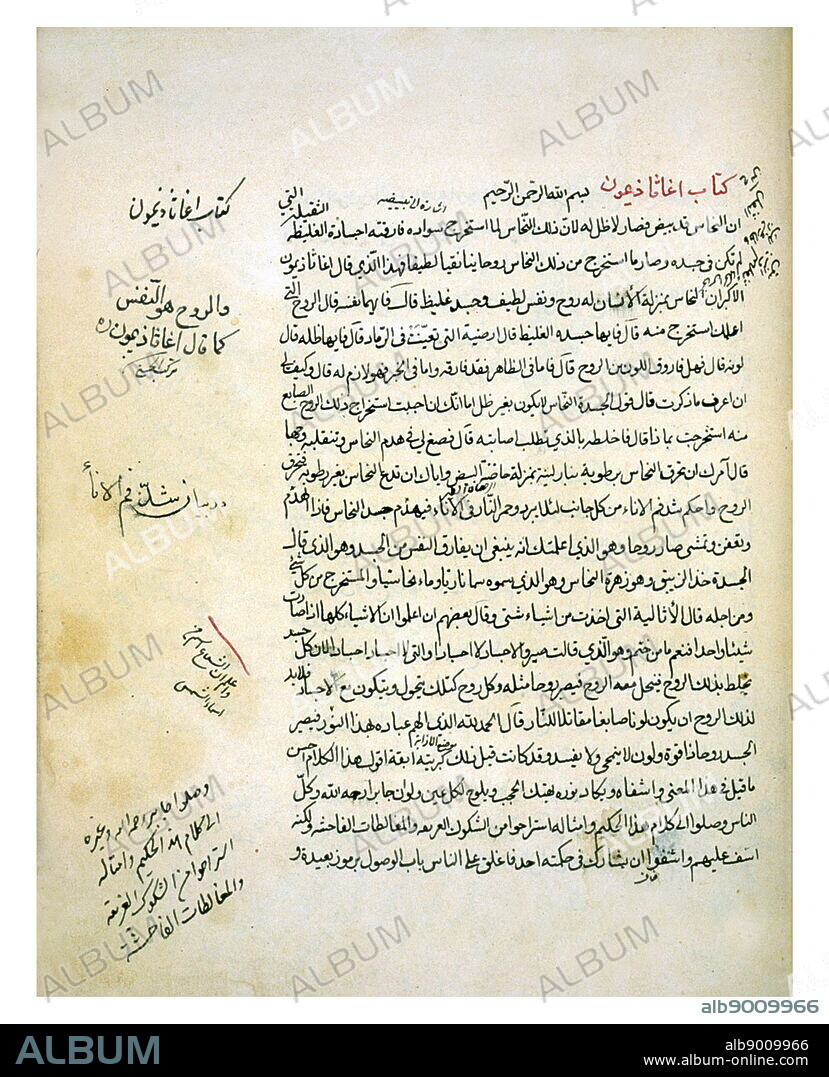 كتاب اغاثاذيمون بسم الله الرحمن الرحيم
ان النحاس قد يبيض فصار لا ظل له لان ذلك النحاس لما استخرج سواده فارقته اجساده الغليظة الثقيلة التي
لم تكن في جسده وصار ما استخرج من ذلك النحاس روحانيا نقيا لطيفا فهذا الذي قال اغاثاذيمون
النحاس بمنزلة الانسان له روح ونفس لطيف وجسد غليظ قال فايهما نفسه قال الروح التي
اعلمك استخرج منه قال فايها جسده الغليظ قال ارضية التي في الرماد قال فايها ظله قال
لونه قال فهل فاروق اللون من الروح قال فاما في الظاهر فقد فارقه واما في الخبر فهو لازم له قال وكيف لي
ان اعرف ما ذكرت قال قول الجسدة النحاس لا يكون بغير ظل اما انك ان احببت استخراج ذلك الروح الصابغ
منه استخرجت بماذا قال فاخلطه بالذي يطلب اصابته قال فصغ لي في هدم النحاس وتنقليه
قال آمرك ان تحرق النحاس برطوبة بنار لينة بمنزلة حاضنة البيض واياك ان تدع النحاس بغير رطوبة فيحترق
الروح واحكم شد فم الاناء من كل جانب لئلا
وتعفن وتمشى صار روحا وهو الذي اعلمتك انه ينبغي ان يفارق النفس من الجسد وهو الذي قال
الجسدة خذ الزيبق وهو زهرة النحاس وهو الذي يسموه سما ناريا وماء نحاسيا والمستخرج من كل شيء
ومن اجله قال الاثالية التي اخذت من اشياء شتى وقال بعضهم ان اعلموا ان الاشياء كلها اذا صارت
شيئا واحدا فنعم ما
يخلط بذلك الروح فينحل معه الروح فيصير روحا مثله وكل روح كذلك يتحول ويتكون مع الاجساد فلابد
لذلك الروح ان يكون لونا صابغا مقاتلا للنار قال الحمد لله الذي الهم عباده بهذا النور فيصير
الجسد روحا ذا قوة ولون لا ينمحي ولا يفسد وقد كانت قبل ذلك كبريتة آبقة اقول هذا الكلام احسن
ما قيل في هذا المعنى واشفاه ويكاد نوره يهتك الحجب ويلوح لكل عين ولو ان جابرا رحمه الله وكل
الناس وصلوا الى كلام هذا الحكيم وامثاله استراحوا من الشكوك العريقه والمغالطات الفاحشه ولكنه
اسف عليهم واشفقوا ان يشارك في حكمته احد فاغلق على الناس باب الوصول برموز بعيدة و
كتاب اغاثاذيمون
والروح هو النفس
كما قال اغاثاذيمون
در بيان شد فم الاناء
وصلوا جابر رحمه الله وغيره
الى كلام هذا الحكيم وامثاله
استراحوا من الشكوك العريقه
والمغالطات الفاحشه
ALBUM
alb9009966
ALBUM
alb9009966
www.album-online.com